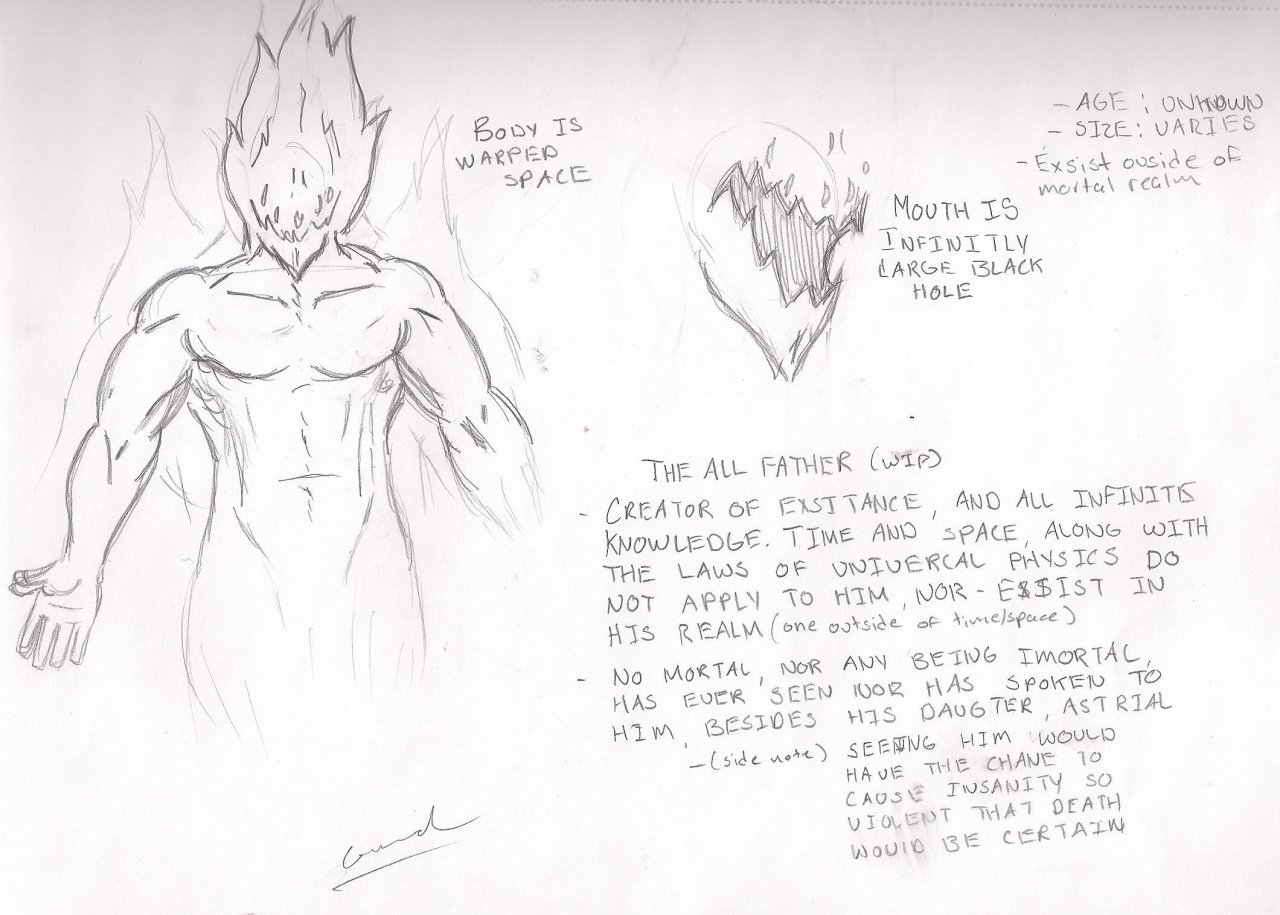 BODY IS
WARPED
SPACE
MOUTH IS
INFINITLY
LARGE BLACK
HOLE
- AGE : UNKNOWN
- SIZE: VARIES
- Exsist ouside of
mortal realm
THE ALL FATHER (WIP)
- CREATOR OF EXSITANCE, AND ALL INFINITE
KNOWLEDGE. TIME AND SPACE, ALONG WITH
THE LAWS OF UNIVERCAL PHYSICS DO
NOT APPLY TO HIM, NOR - EXSIST IN
HIS REALM (one outside of time/space)
- NO MORTAL, NOR ANY BEING IMORTAL,
HAS EVER SEEN NOR HAS SPOKEN TO
HIM, BESIDES HIS DAUGTER, ASTRIAL
- (side note) SEEING HIM WOULD
HAVE THE CHANE TO
CAUSE INSANITY SO
VIOLENT THAT DEATH
WOULD BE CERTAIN